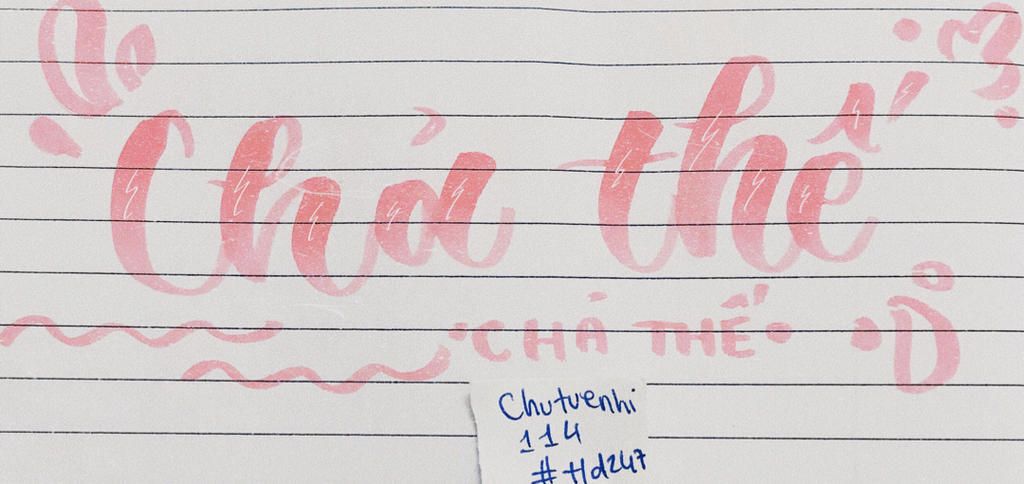 Chả thế
CHẢ THẾ
Chutuenhi
114
#Hd247